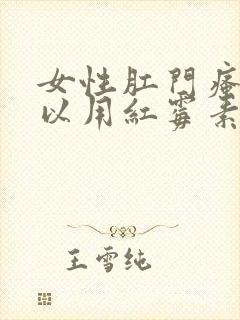 女性肛門瘙
以用紅霉素
王雪纯